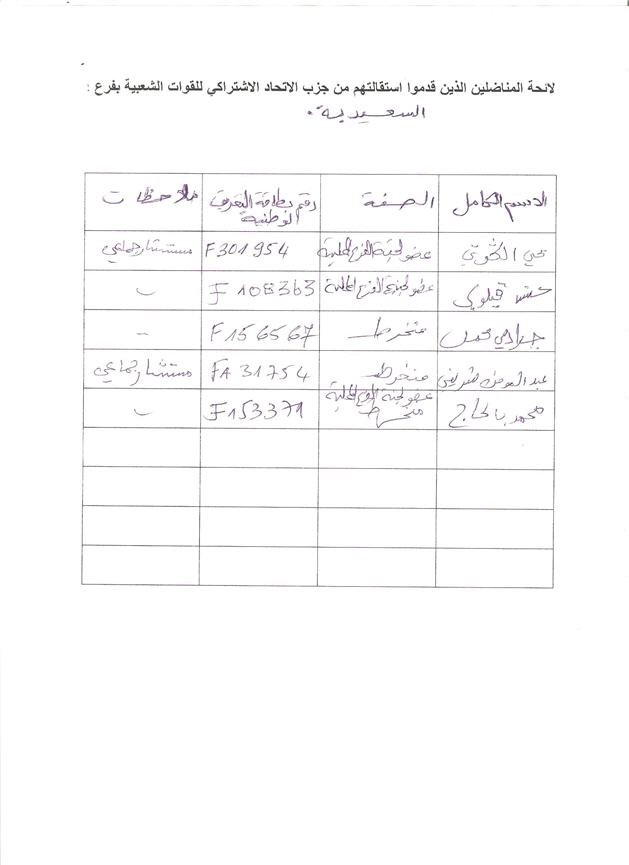 لائحة المناضلين الذين قدموا استقالتهم من جزب الاتحاد الاشتراكي للقوات الشعبية بفرع :
السعيدية.
الاسم الكامل الصفة رقم بطاقة التعريف الوطنية ملاحظات
عضو لجنة الفرع المحلية F301954 مستشار جماعي
حسن عضو لجنة الفرع المحلية F108363 -
محمد منخرط F156567 -
منخرط FA 31754 مستشار جماعي
محمد بالحاج عضو لجنة الفرع المحلية F153371 -
منخرط